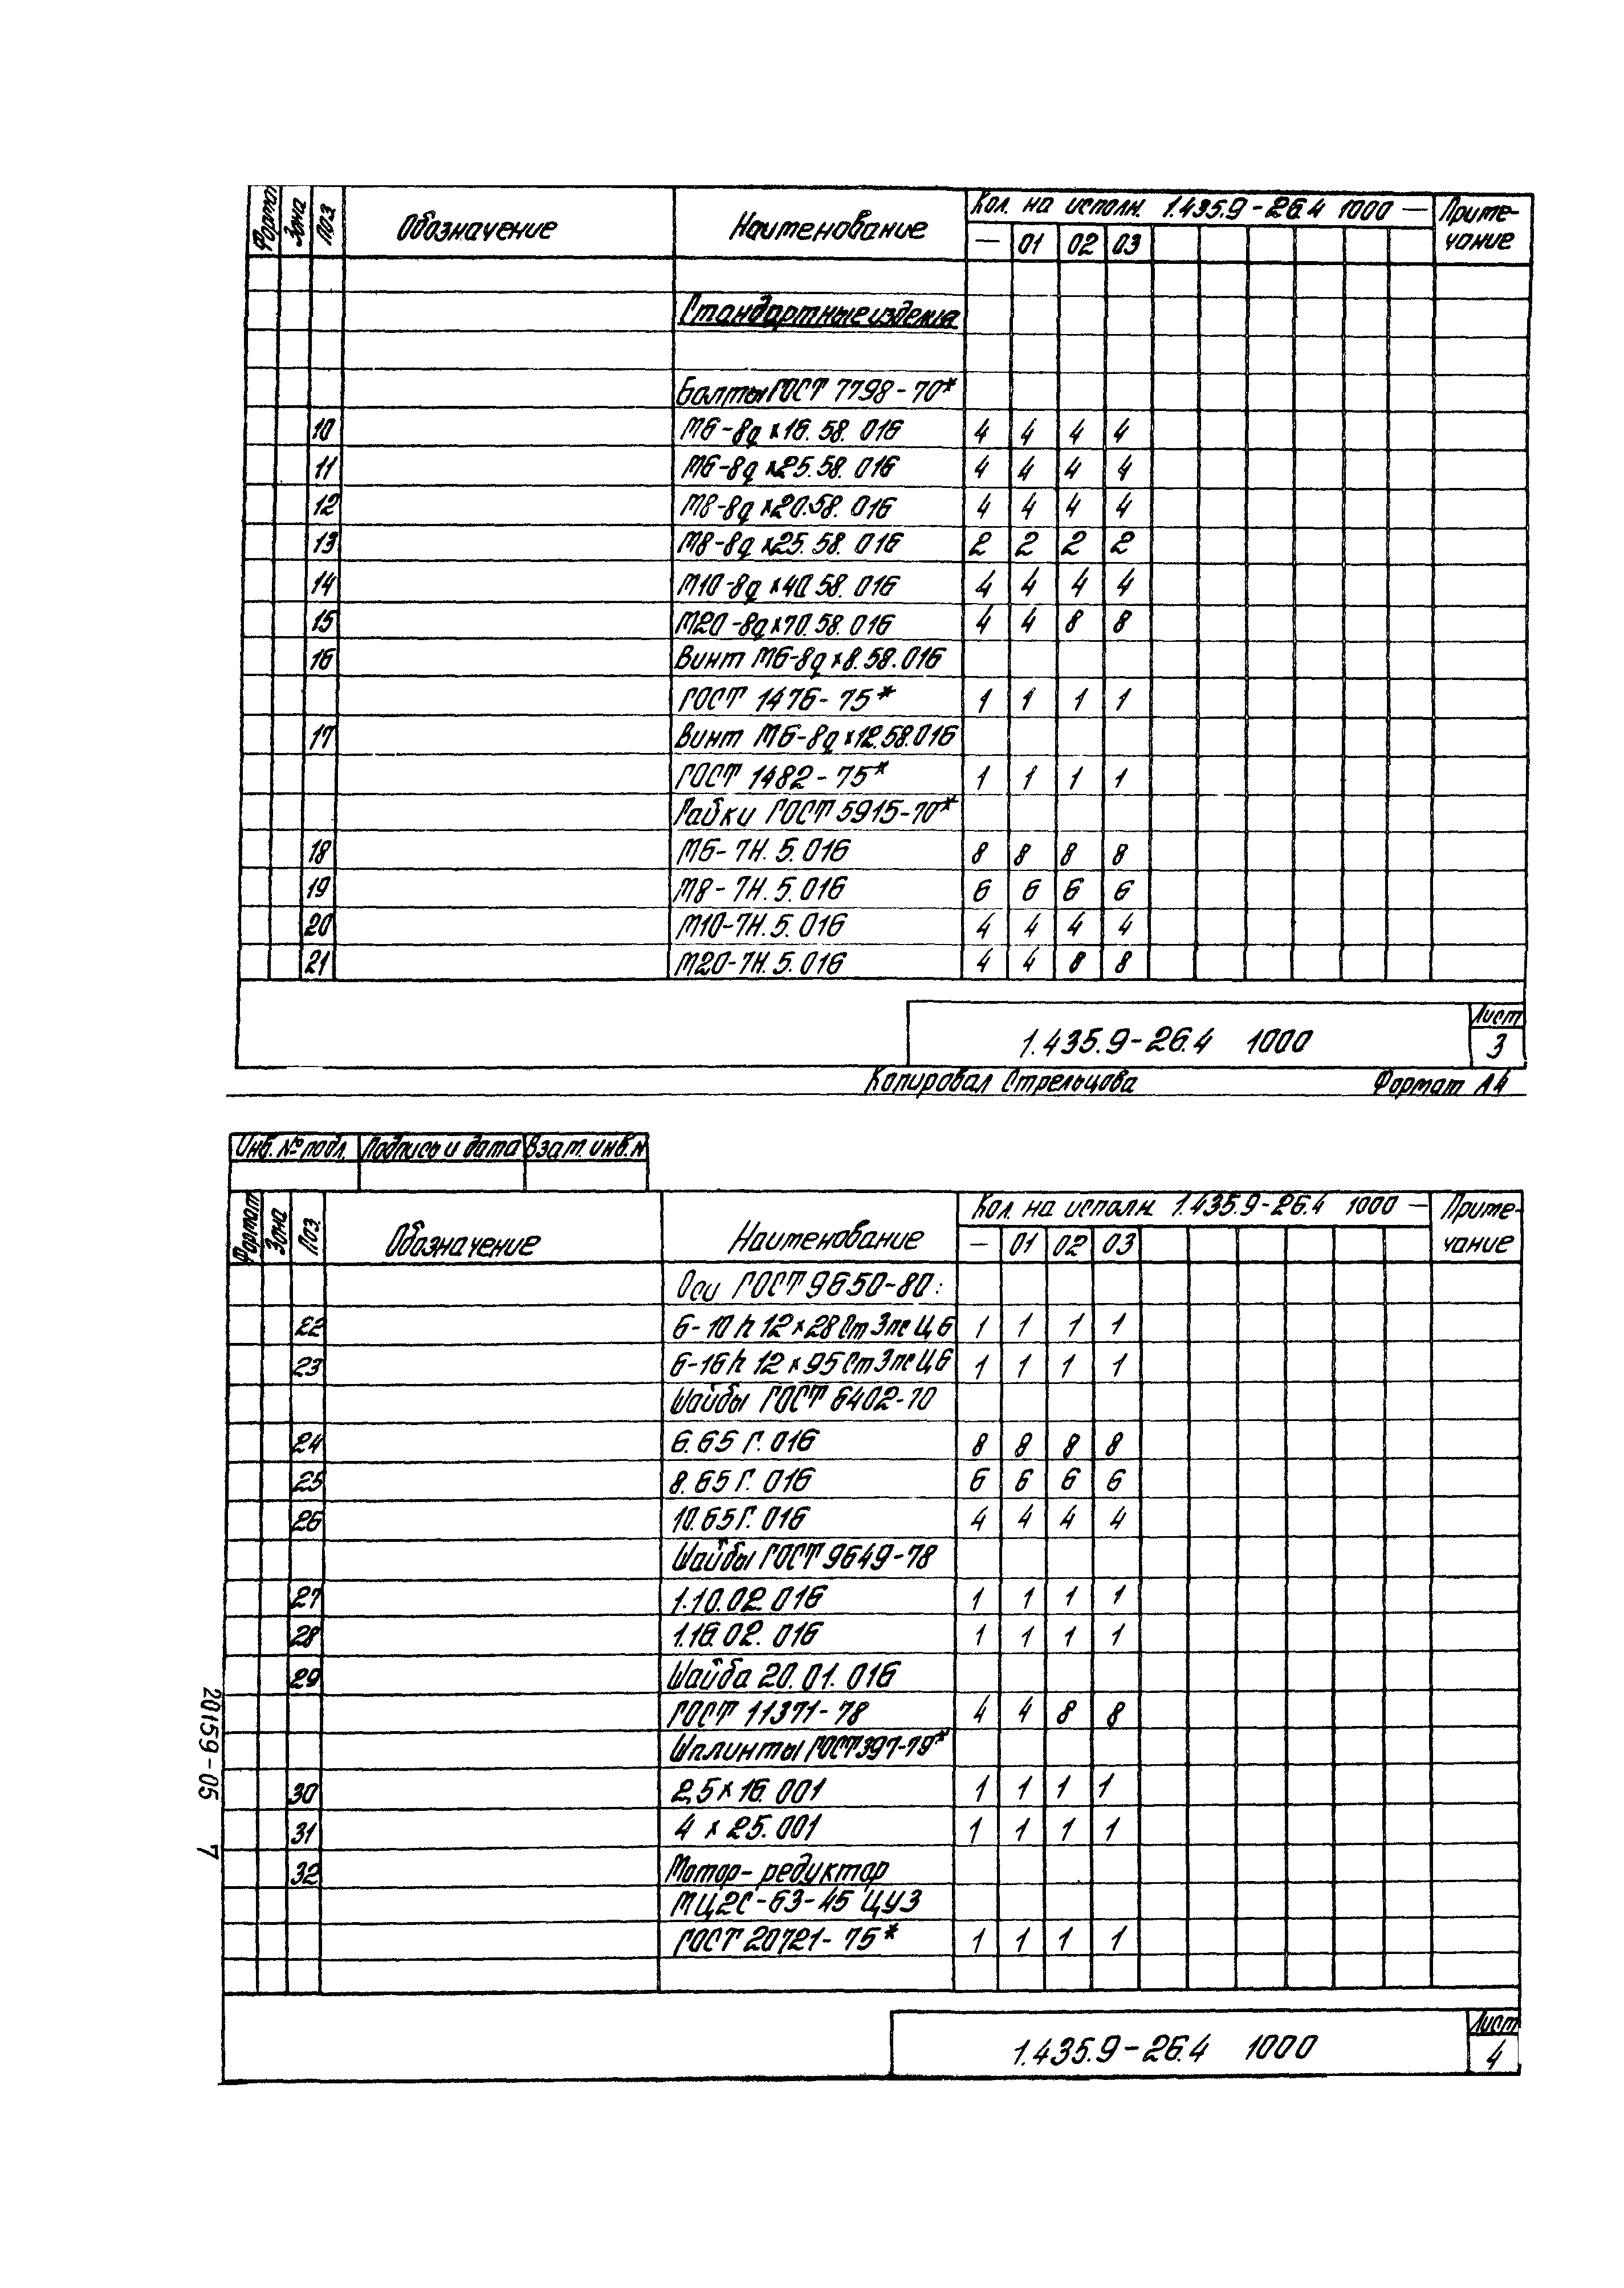 Формат Зона Поз. Обозначение Наименование Кол. на исполн. 1.435.9-26.4 1000 — Приме-чание
— 01 02 03
Стандартные изделия
Болты ГОСТ 7798-70*
10 М6-8g×16.58.016 4 4 4 4
11 М6-8g×25.58.016 4 4 4 4
12 М8-8g×20.58.016 4 4 4 4
13 М8-8g×25.58.016 2 2 2 2
14 М10-8g×40.58.016 4 4 4 4
15 М20-8g×70.58.016 4 4 8 8
16 Винт М6-8g×8.58.016
ГОСТ 1476-75* 1 1 1 1
17 Винт М6-8g×12.58.016
ГОСТ 1482-75* 1 1 1 1
Гайки ГОСТ 5915-70*
18 М6-7Н.5.016 8 8 8 8
19 М8-7Н.5.016 6 6 6 6
20 М10-7Н.5.016 4 4 4 4
21 М20-7Н.5.016 4 4 8 8
1.435.9-26.4 1000 Лист 3
Копировал Стрельцова Формат А4
Инв. № подл. Подпись и дата Взам. инв. №
Формат Зона Поз. Обозначение Наименование Кол. на исполн. 1.435.9-26.4 1000 — Приме-чание
— 01 02 03
Оси ГОСТ 9650-80:
22 6-10 h 12×28 Ст 3пс Ц6 1 1 1 1
23 6-16 h 12×95 Ст 3пс Ц6 1 1 1 1
Шайбы ГОСТ 6402-70
24 6.65 Г.016 8 8 8 8
25 8.65 Г.016 6 6 6 6
26 10.65 Г.016 4 4 4 4
Шайбы ГОСТ 9649-78
27 1.10.02.016 1 1 1 1
28 1.16.02.016 1 1 1 1
29 Шайба 20.01.016
ГОСТ 11371-78 4 4 8 8
Шплинты ГОСТ 397-79*
30 2,5×16.001 1 1 1 1
31 4×25.001 1 1 1 1
32 Мотор-редуктор
МЦ2С-63-45 ЦУ3
ГОСТ 20721-75* 1 1 1 1
1.435.9-26.4 1000 Лист 4
20159-05 7